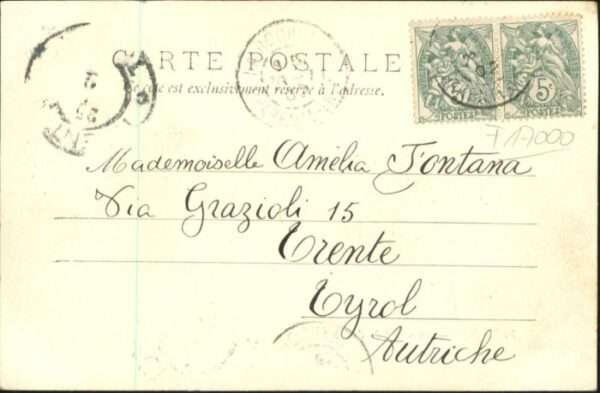 CARTE POSTALE
Ce côté est exclusivement réservé à l'adresse.
5c
POSTES
POSTES
7 17000
Mademoiselle Amélia Fontana
Via Grazioli 15
Trente
Tyrol
Autriche